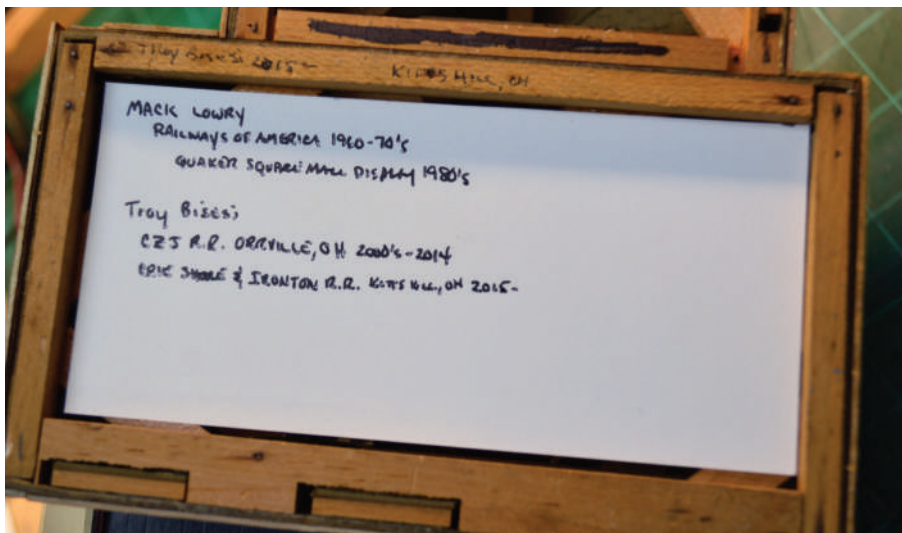 Troy Bisesi 2015-
KITTS HILL, OH
MACK LOWRY
RAILWAYS OF AMERICA 1960-70's
QUAKER SQUARE MALL DISPLAY 1980's
Troy Bisesi
CZJ R.R. ORRVILLE, OH 2000's-2014
ERIE SHORE & IRONTON R.R. KITTS HILL, OH 2015-